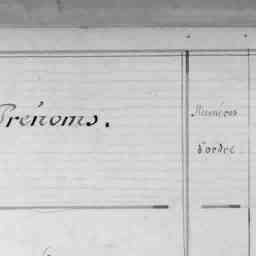 Prénoms.
Numéros
d'ordre